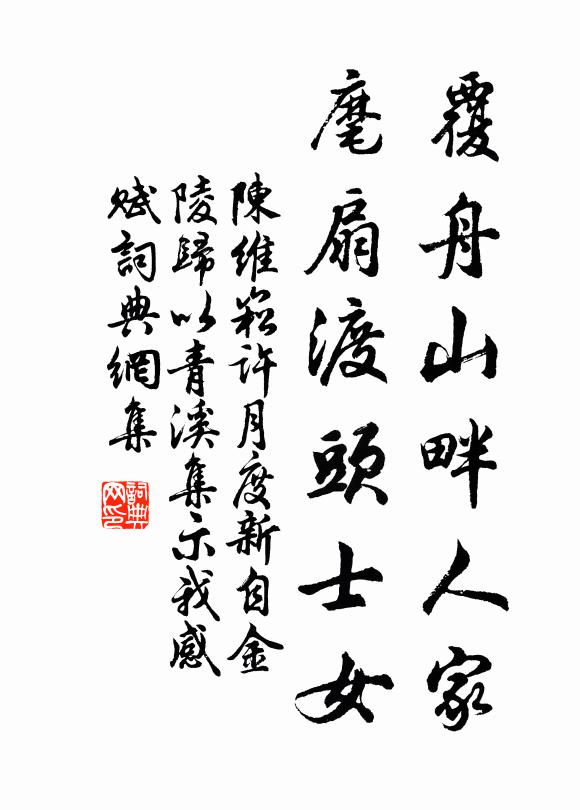 覆舟山畔人家
麾扇渡頭士女
陳維崧許月度新自金
陵歸以青溪集示我感
賦詞典網集
詞典網印